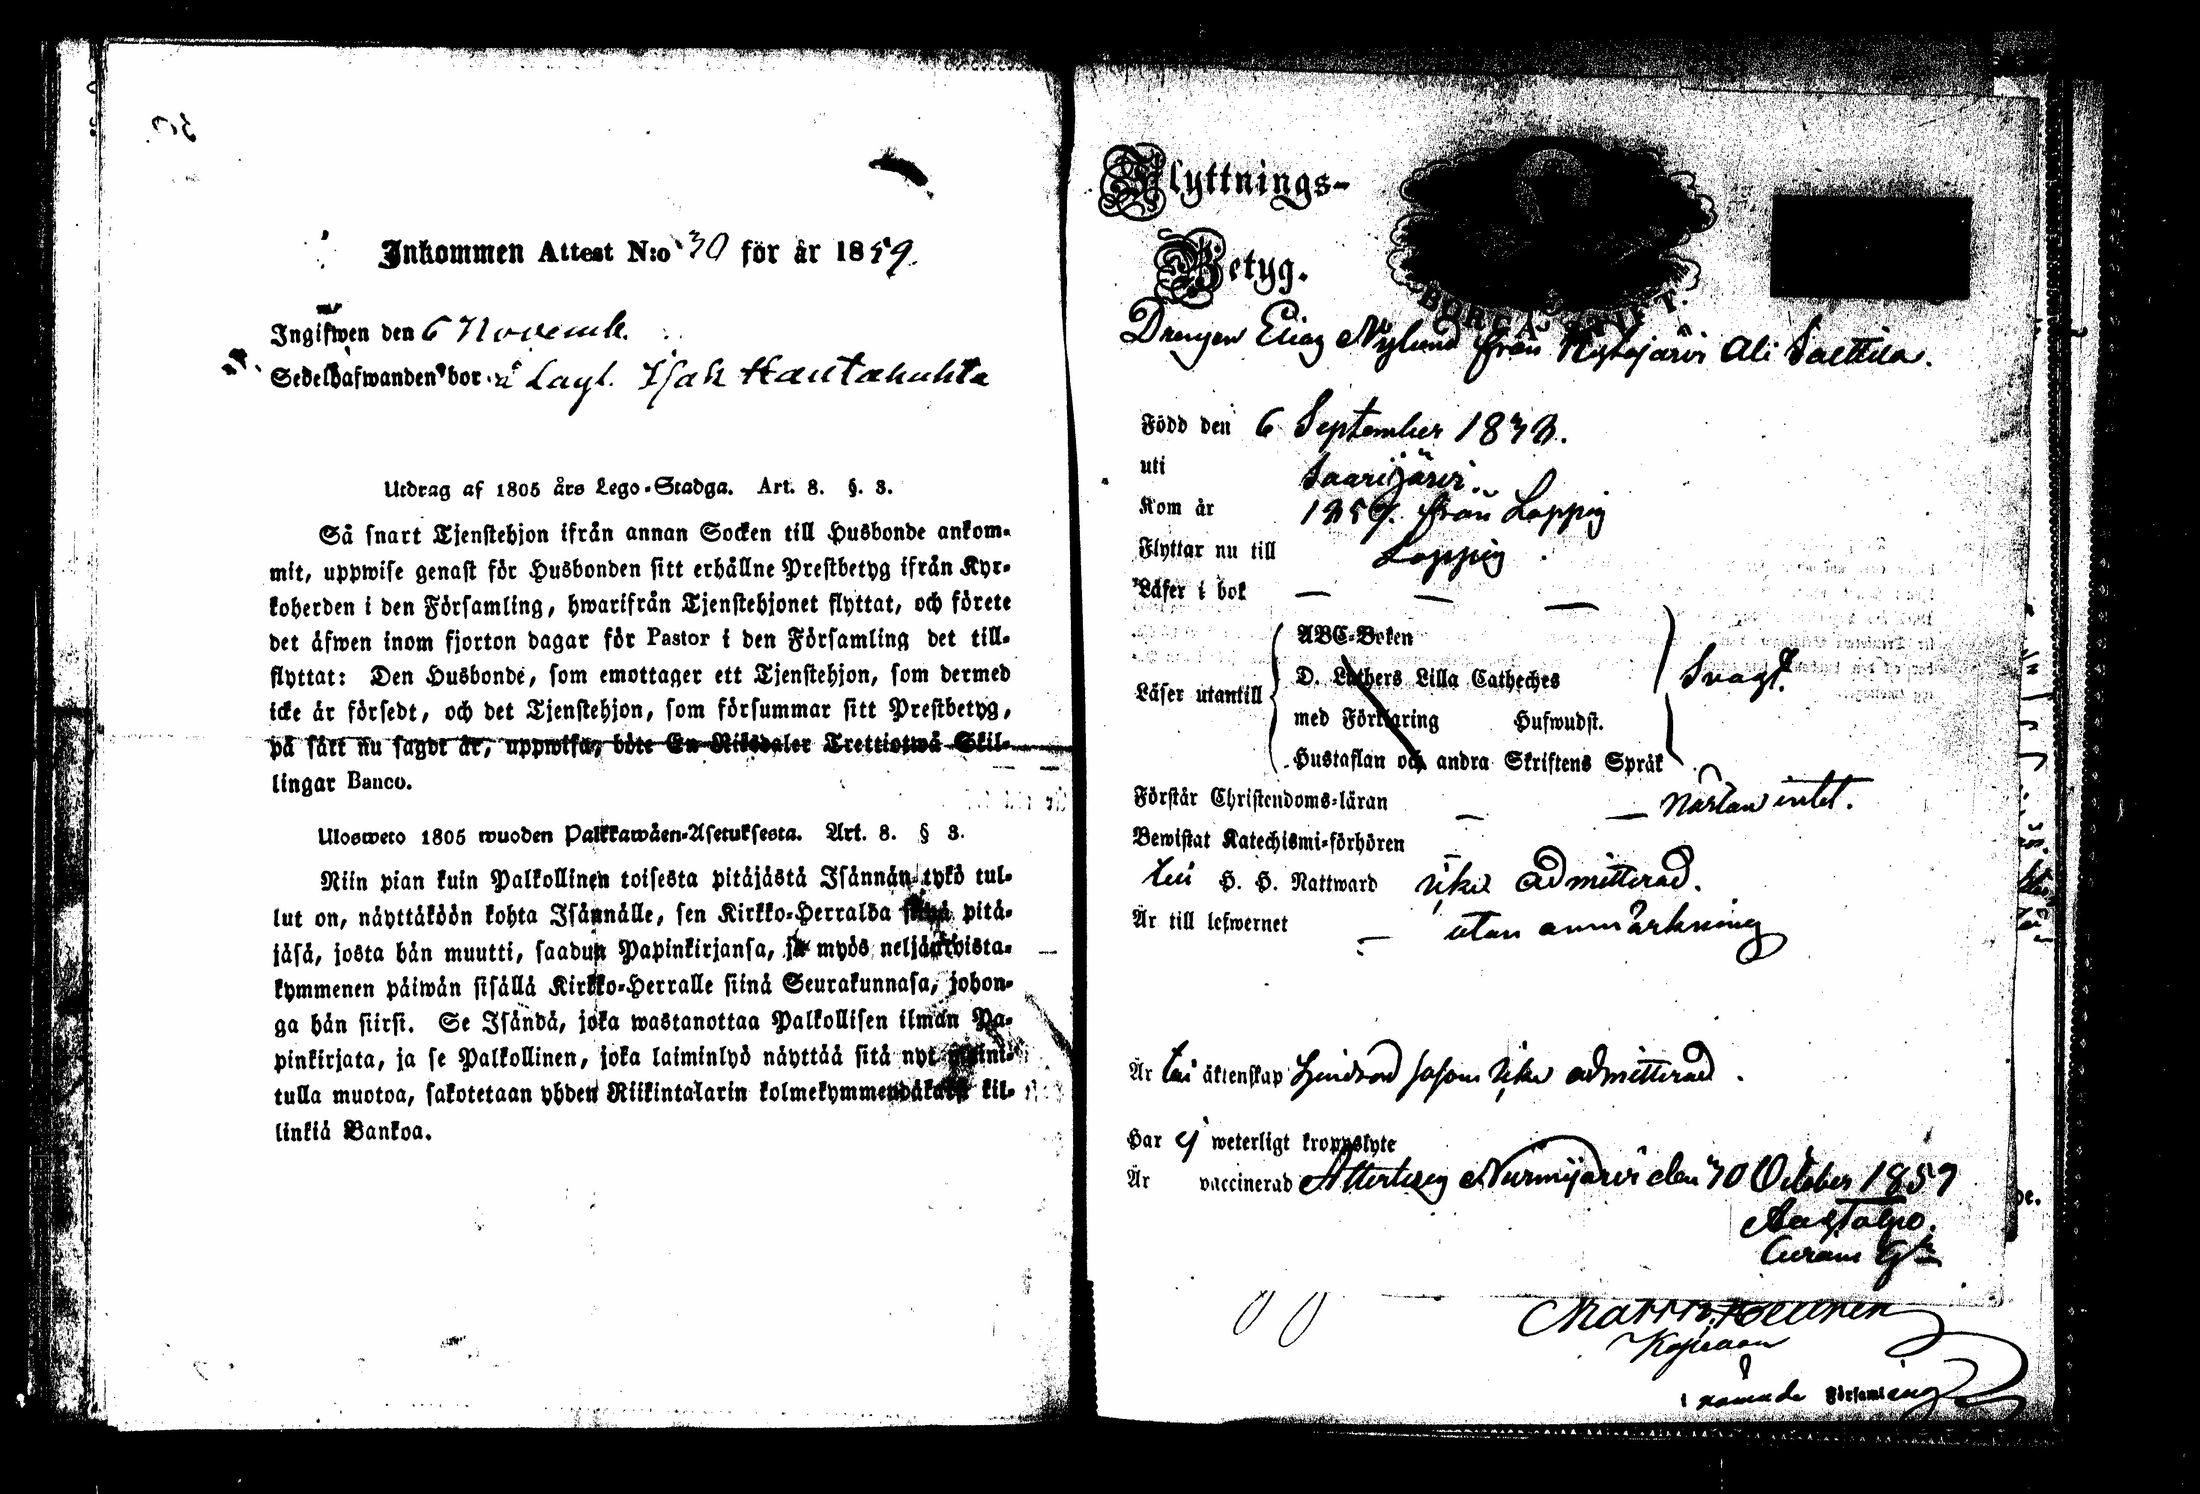 Inkommen Attest N:o 30 för år 1859.
Ingifwen den 6 Novemb.
Sedelhafwanden bor å Lägl. Isak Hautakuhta
Utdrag af 1805 års Lego-Stadga. Art. 8. §. 3.
Så snart Tjenstehjon ifrån annan Socken till Husbonde ankom-
mit, uppwise genast för Husbonden sitt erhållne Prestbetyg ifrån Kyr-
koherden i den Församling, hwarifrån Tjenstehjonet flyttat, och förete
det äfwen inom fjorton dagar för Pastor i den Församling det till-
flyttat: Den Husbonde, som emottager ett Tjenstehjon, som dermed
icke är försedt, och det Tjenstehjon, som försummar sitt Prestbetyg,
på sätt nu sagdt är, uppwisa, böte En Riksdaler Trettiotwå Skil-
lingar Banco.
Ulosweto 1805 wuoden Palkkawäen-Asetuksesta. Art. 8. § 3.
Niin pian kuin Palkollinen toisesta pitäjästä Isännän tykö tul-
lut on, näyttäköön kohta Isännälle, sen Kirkko-Herralda siinä pitä-
jäsä, josta hän muutti, saadun Papinkirjansa, ja myös neljäntoista-
kymmenen päiwän sisällä Kirkko-Herralle siinä Seurakunnasa, johon-
ga hän siirsi. Se Isändä, joka wastanottaa Palkollisen ilman Pa-
pinkirjata, ja se Palkollinen, joka laiminlyö näyttää sitä nyt mainitulla
tulla muotoa, sakotetaan yhden Riikintalarin kolmekymmendäkaksi kil-
linkiä Bankoa.
Flyttnings-
Betyg.
BORGÅ STIFT.
Drengen Elias Nylund från Nystajärvi Ali Saettila.
Född den 6 September 1833.
uti Saarijärvi.
Kom år 1859. från Loppis
Flyttar nu till Loppis
Läser i bok
Läser utantill
ABC-Boken
D. Luthers Lilla Catheches
med Förklaring Hufwudst.
Hustaflan och andra Skriftens Språk
Svagt.
Förstår Christendoms-läran nästan intet.
Bewistat Katechismi-förhören
till H. H. Nattward icke admitterad.
Är till lefwernet utan anmärkning
Är till äktenskap hindrad såsom icke admitterad.
Har ej weterligt kroppslyte
Är vaccinerad Atterteras Nurmijärvi den 30 October 1859
Curam G
Kaplan
i nämnde Församling